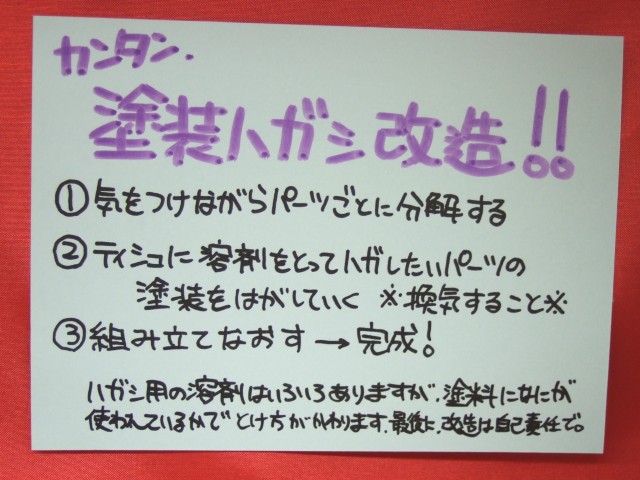 カンタン.
塗装ハガシ改造!!
①気をつけながらパーツごとに分解する
②ティシュに溶剤をとってハガしたいパーツの
塗装をはがしていく ※換気すること※
③組み立てなおす→完成!
ハガシ用の溶剤はいろいろありますが、塗料になにが
使われているかで とけ方がかわります。最後に、改造は自己責任で。